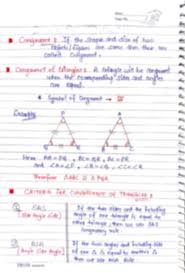 Congruent : If the shape and size of two
objects/figures are same then they are
called Congruent.
Congruence of triangles : A triangle will be congruent
when its corresponding sides and angles
are equal.
Symbol of Congruent → ≅
Example
A
P
B
C
Q
R
Here AB = PQ , BC = QR , AC = PR
and ∠A = ∠P , ∠B = ∠Q , ∠C = ∠R
Therefore ΔABC ≅ ΔPQR
Criteria for Congruence of Triangles :
① SAS
(Side Angle Side)
If two sides and the including
angle of one triangle is equal to
other triangle, then we use SAS
congruency rule
② ASA
(Angle Side Angle)
If two angles and including side
of one Δ is equal to another Δ
then we use ASA rule